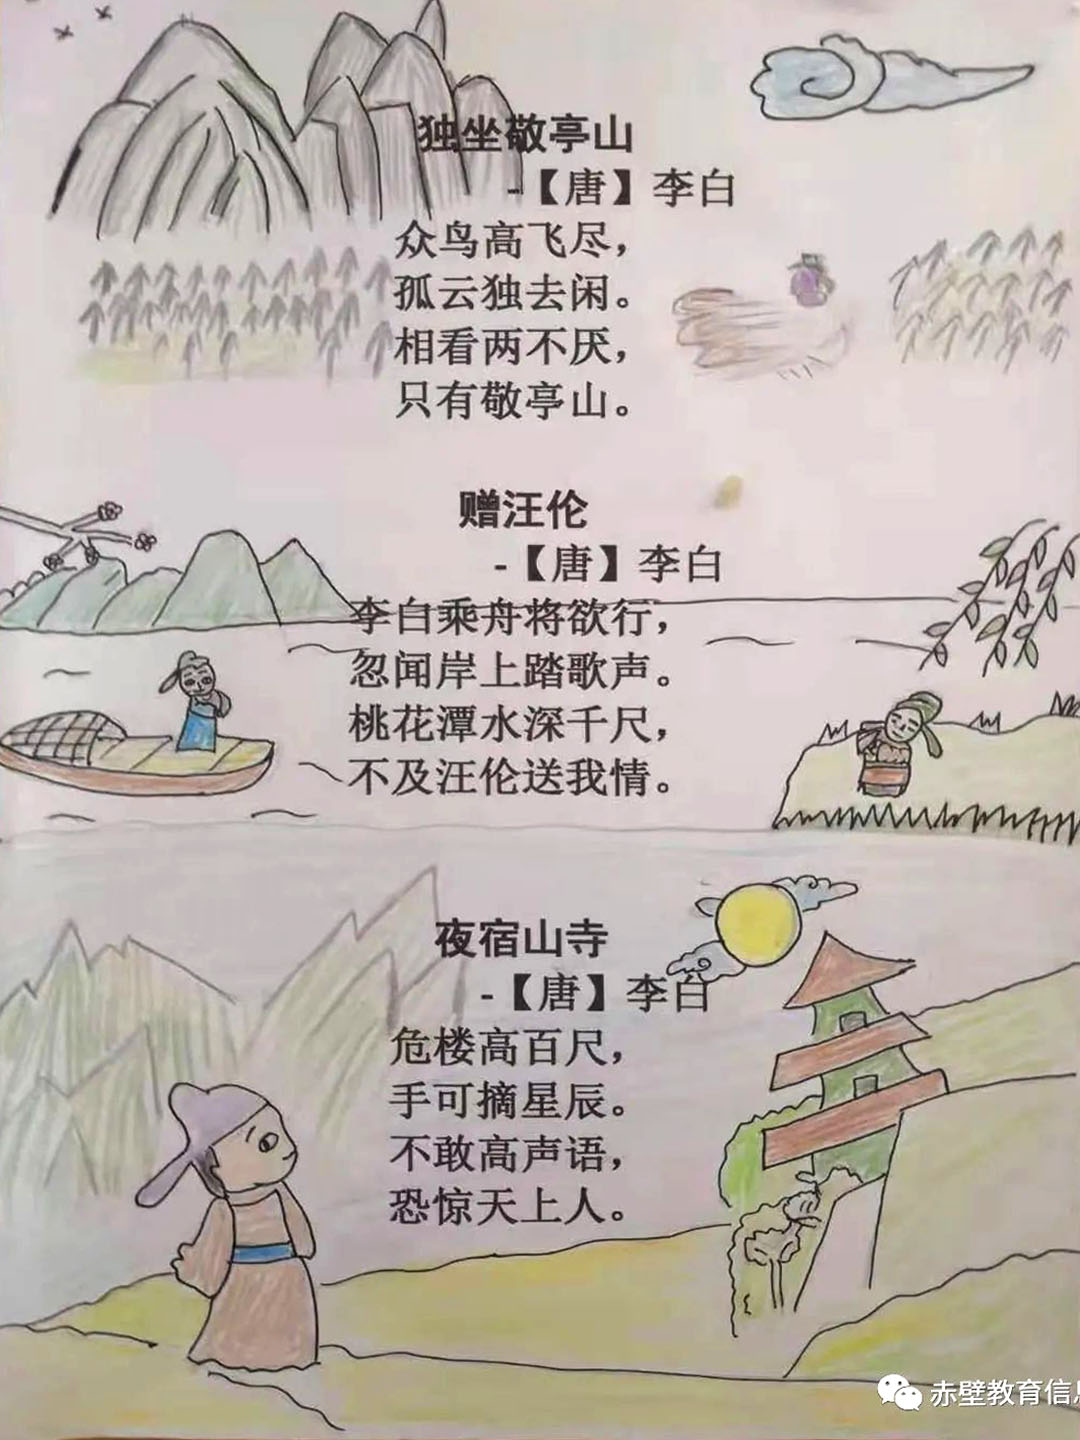 独坐敬亭山
-【唐】李白
众鸟高飞尽，
孤云独去闲。
相看两不厌，
只有敬亭山。
赠汪伦
-【唐】李白
李白乘舟将欲行，
忽闻岸上踏歌声。
桃花潭水深千尺，
不及汪伦送我情。
夜宿山寺
-【唐】李白
危楼高百尺，
手可摘星辰。
不敢高声语，
恐惊天上人。
赤壁教育信息